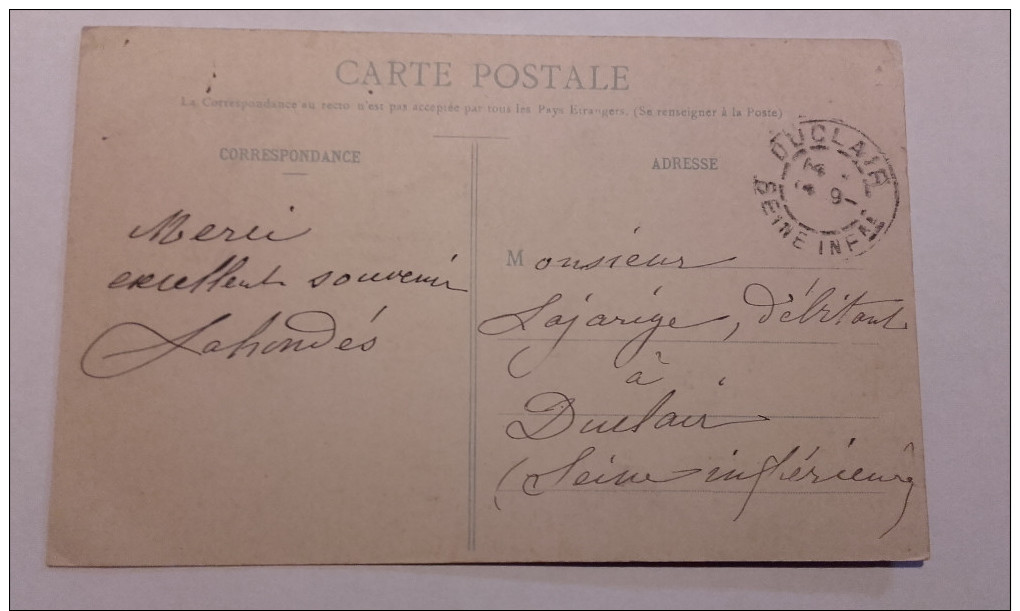 CARTE POSTALE
La Correspondance au recto n'est pas acceptée par tous les Pays Etrangers. (Se renseigner à la Poste)
CORRESPONDANCE
Merci
excellent souvenir
Lahondés
ADRESSE
DUCLAIR
SEINE INFRE
Monsieur
Lajarige, débitant
à
Duclair
(Seine-inférieure)